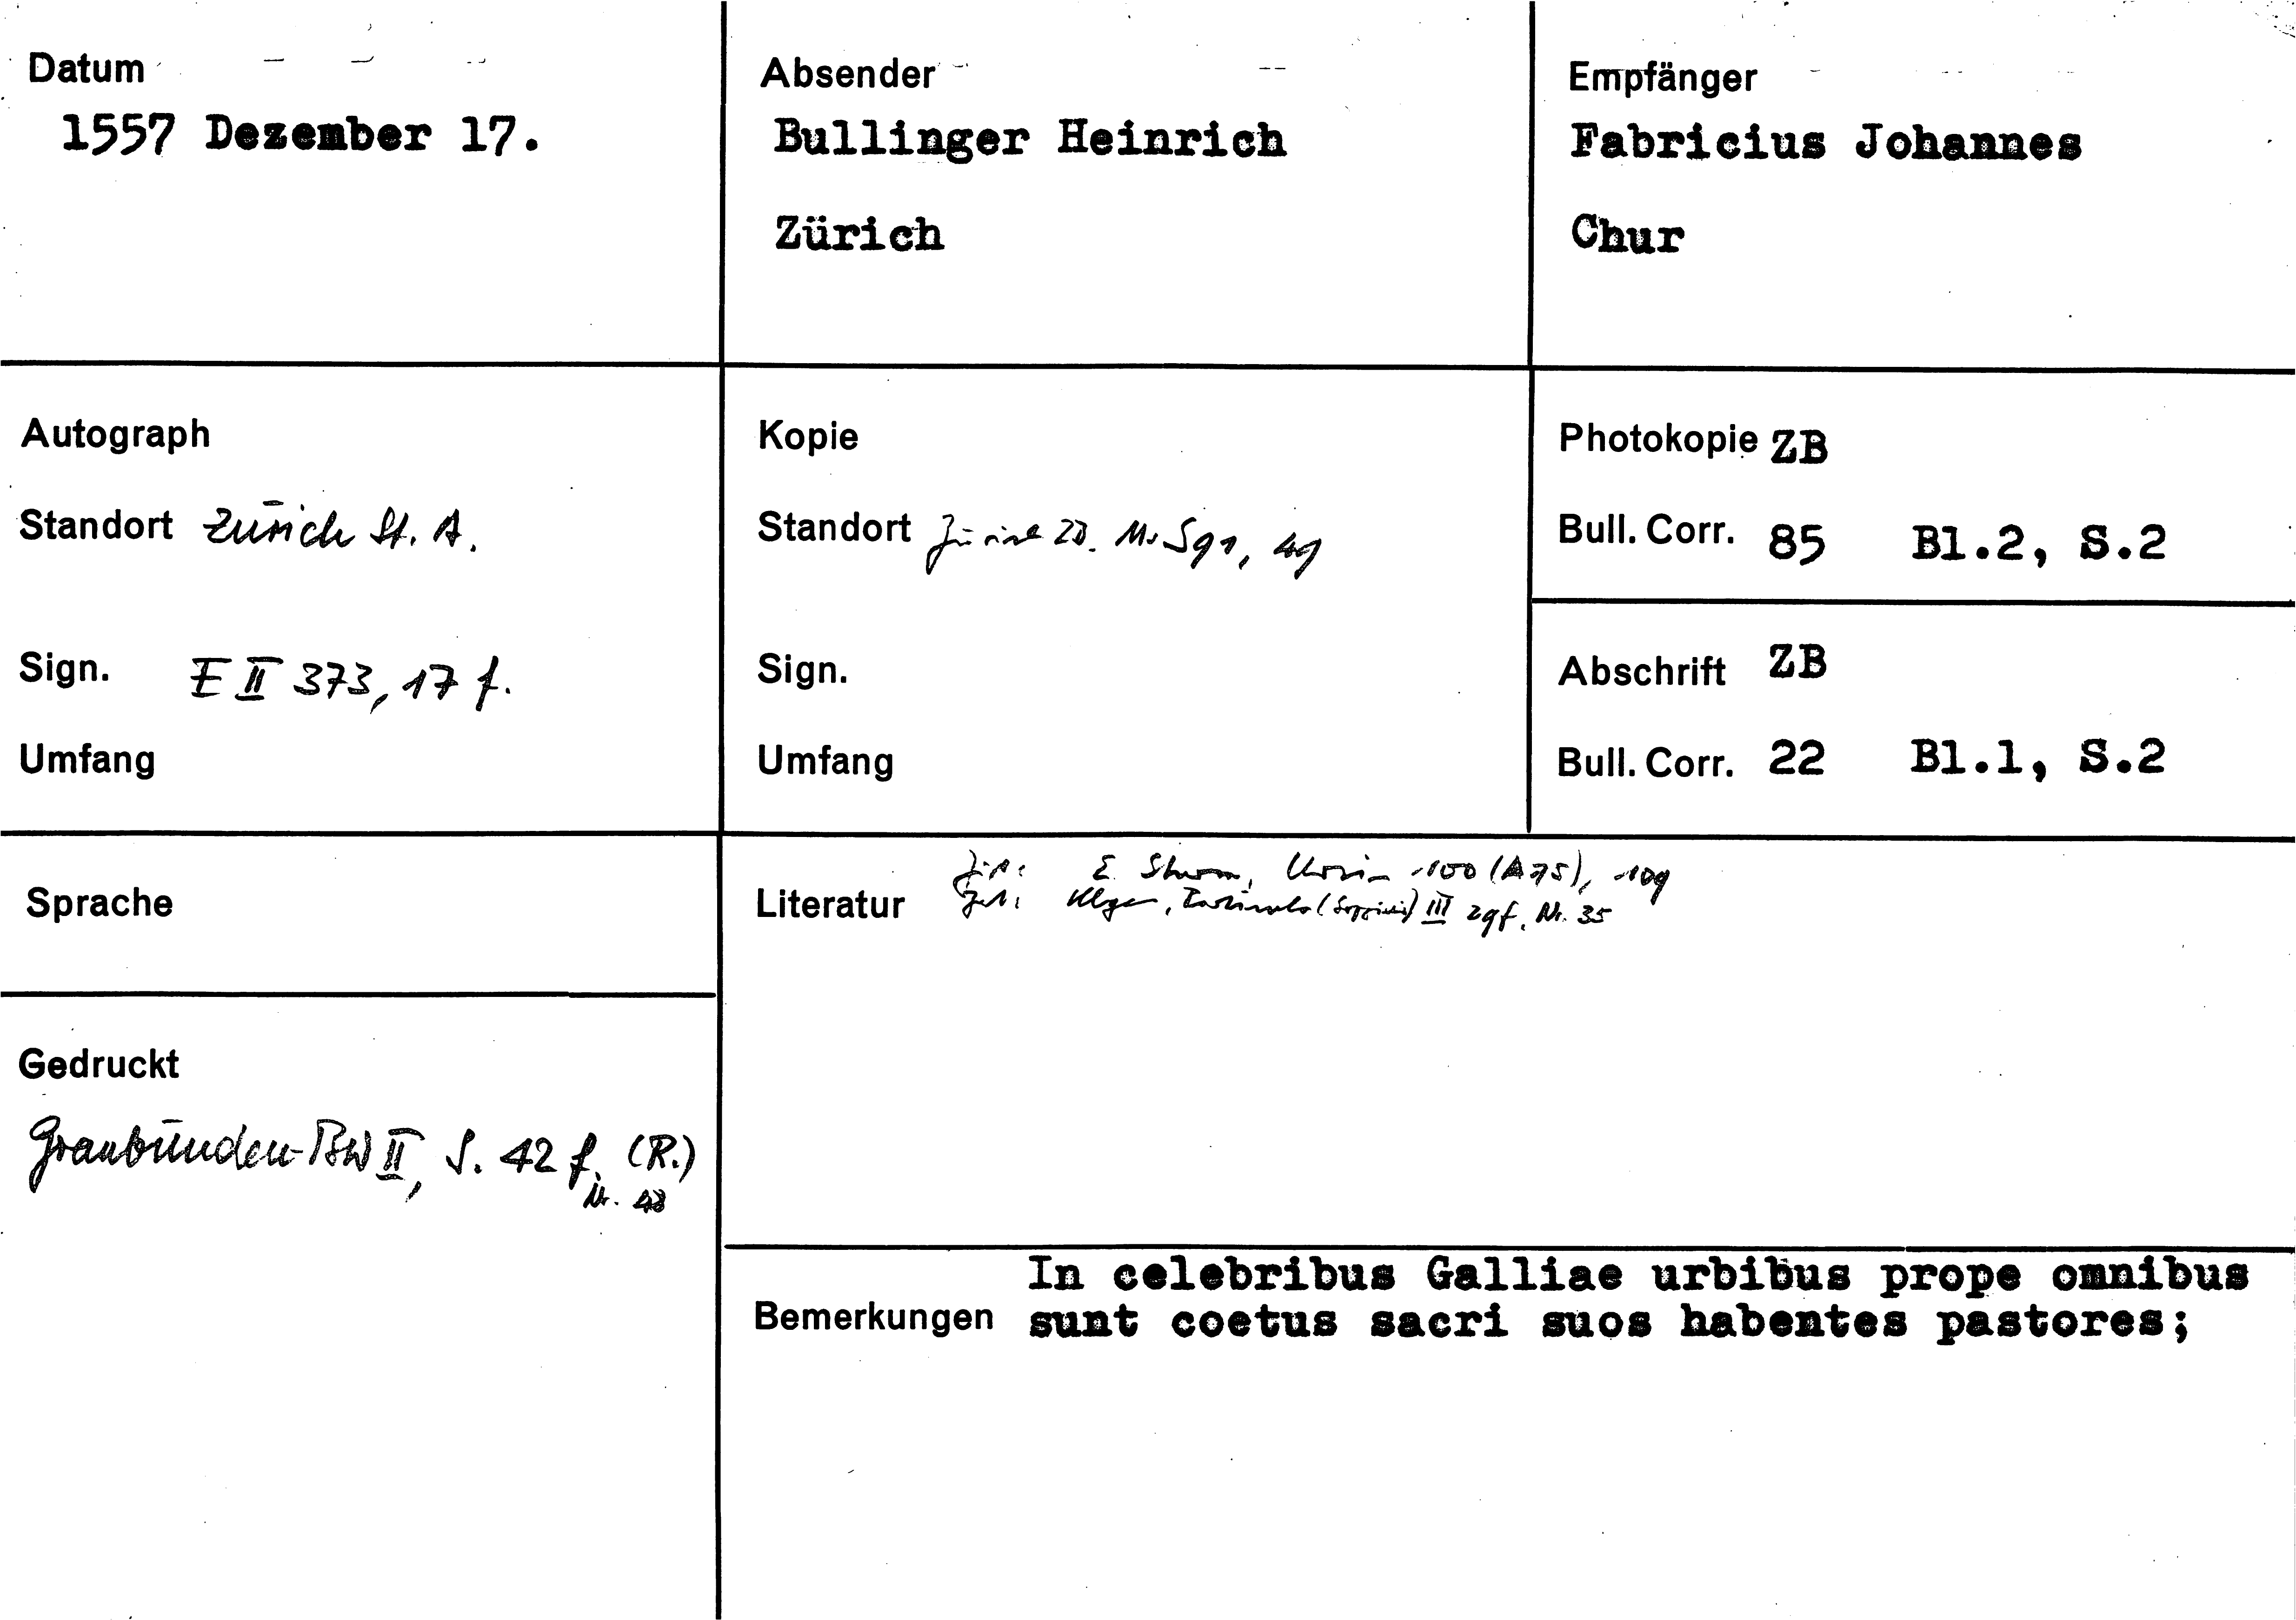 Datum
1557 Dezember 17.
Absender
Bullinger Heinrich
Zürich
Empfänger
Fabricius Johannes
Chur
Autograph
Standort Zürich St. A.
Sign. E II 373, 17 f.
Umfang
Kopie
Standort Zürich ZB. Ms S 91, 49
Sign.
Umfang
Photokopie ZB
Bull. Corr. 85 Bl.2, S.2
Abschrift ZB
Bull. Corr. 22 Bl.1, S.2
Sprache
Literatur
Zit: E. Sturm, 100 (A 75), 109
Zit: III 29f. Nr. 35
Gedruckt
Graubünden-BW II, S. 42 f. (R.)
Nr. 48
Bemerkungen
In celebribus Galliae urbibus prope omnibus
sunt coetus sacri suos habentes pastores;